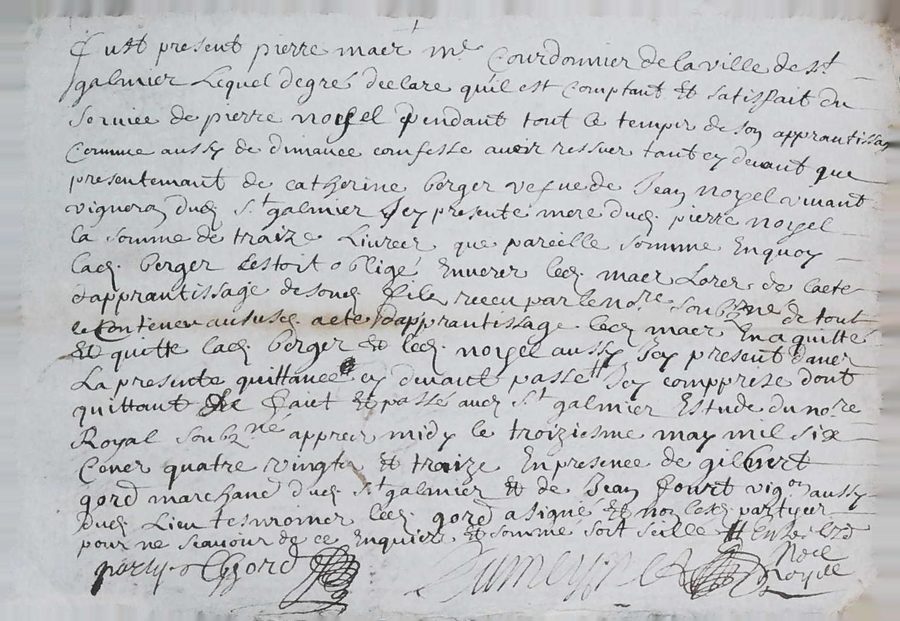 Fust present pierre maer me Courdonnier de la ville de st
galmier Lequel de gré declare quil est Comptant Et satisfait du
Service de pierre noyel pendant tout le temps de son apprantissag
Comme aussy de dimance confesse avoir ressuer tant cy devant que
presentemant de catherine berger vefve de Jean noyel vivant
vigneron dud. st galmier Jcy presente mere dud. pierre noyel
la somme de traize Livres que pareille somme Enquoy
lad. berger cestoit obligé Enverer led. maer Lorer de lacte
dapprantissage de sond. fils receu par le nore soubzne de tout
le contenu aususd. acte dapprantissage led. maer En a quitté
Et quitte lad. berger Et led. noyel aussy Jcy present
La presente quittance cy devant passe Jcy compprise dont
quittant faict Et passé aud. st galmier Estude du nore
Royal soubzne appres midy le troiziesme may mil six
Cener quatre vingtz Et traize En presence de gilbert
gord marchand dud. st galmier Et de Jean Court vigon aussy
dud. Lieu tesmoiner led. gord a signé Et non lesd. partyer
pour ne scavoir de ce Enquier Et sommé soit seille
party Ggord Dumeynet